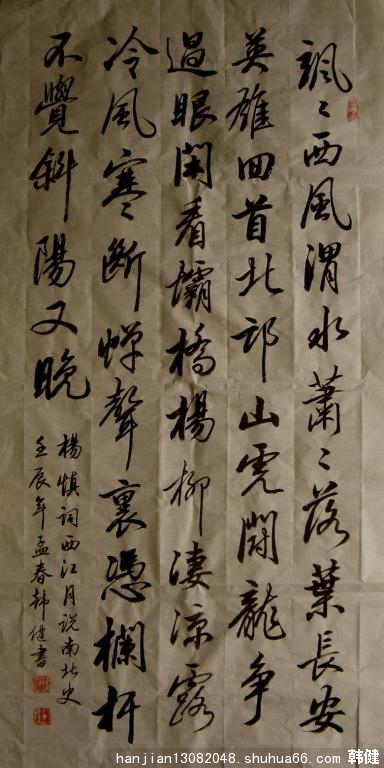 颯〻西風渭水蕭〻落葉長安
英雄回首北邙山虎鬪龍争
過眼閑看壩橋楊柳淒涼露
冷風寒斷蟬聲裏憑欄杆
不覺斜陽又晚
楊慎詞西江月説南北史
壬辰年孟春韓健書
hanjian13082048.shuhua66.com 韩健